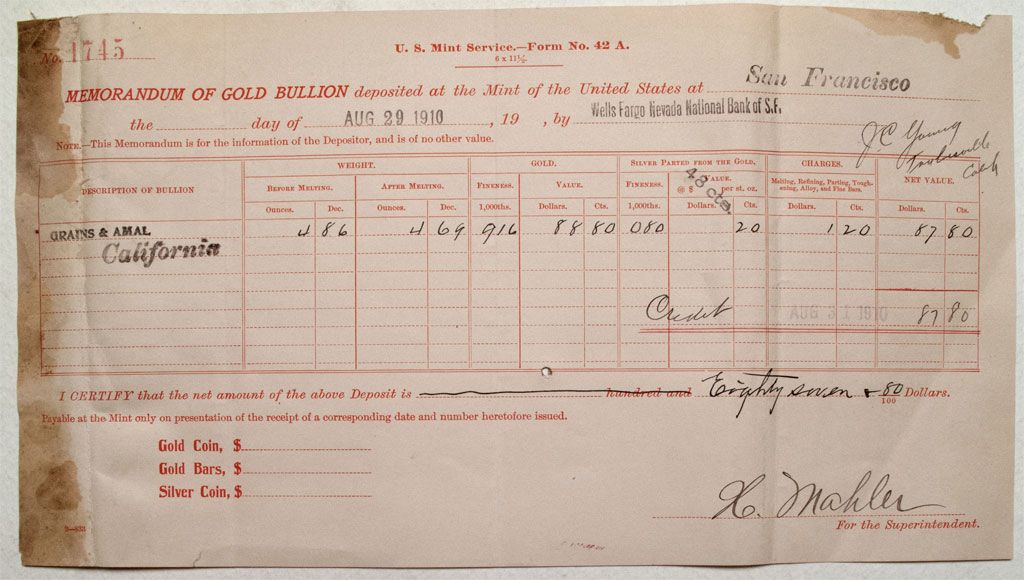 No. 1745
U. S. Mint Service.—Form No. 42 A.
6 x 11½.
MEMORANDUM OF GOLD BULLION deposited at the Mint of the United States at San Francisco
the day of AUG 29 1910, 19 , by Wells Fargo Nevada National Bank of S.F.
NOTE.—This Memorandum is for the information of the Depositor, and is of no other value.
J.C. Young
Cal
DESCRIPTION OF BULLION WEIGHT. GOLD. SILVER PARTED FROM THE GOLD. CHARGES. NET VALUE.
BEFORE MELTING. AFTER MELTING. FINENESS. VALUE. FINENESS. VALUE. @ $ 48 cts. per st. oz. Melting, Refining, Parting, Toughening, Alloy, and Fine Bars.
Ounces. Dec. Ounces. Dec. 1,000ths. Dollars. Cts. 1,000ths. Dollars. Cts. Dollars. Cts. Dollars. Cts.
GRAINS & AMAL 4 86 4 69 916 88 80 080 20 1 20 87 80
California
Credit AUG 31 1910 87 80
I CERTIFY that the net amount of the above Deposit is hundred and Eighty seven & 80/100 Dollars.
Payable at the Mint only on presentation of the receipt of a corresponding date and number heretofore issued.
Gold Coin, $
Gold Bars, $
Silver Coin, $
X. Mahler
For the Superintendent.